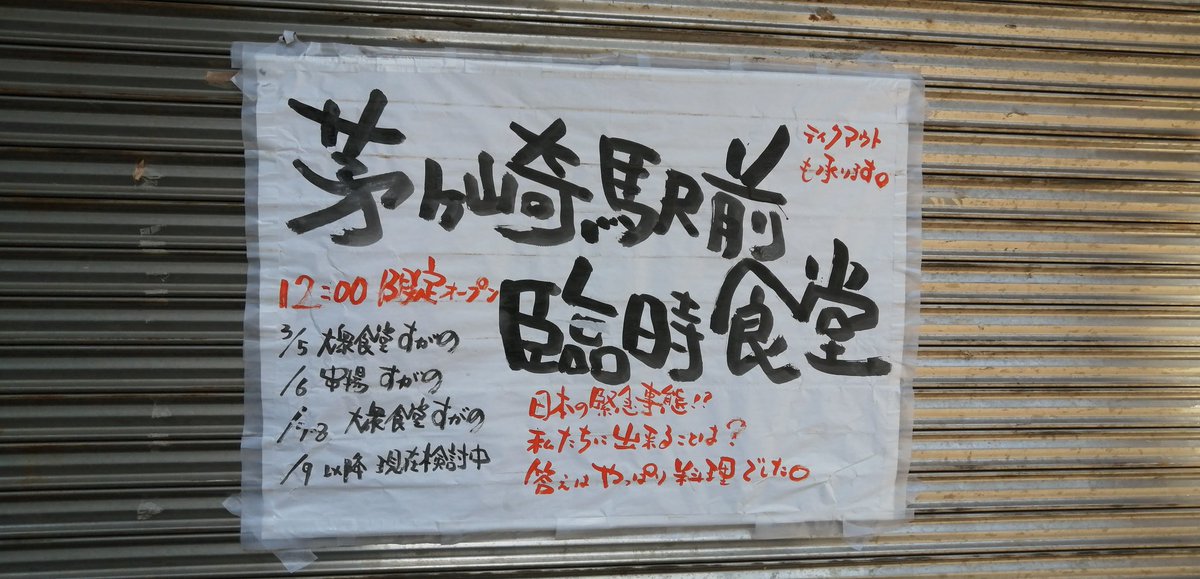 茅ヶ崎駅前
臨時食堂
テイクアウト
も承ります。
12:00 限定オープン
3/5 大衆食堂すがの
/6 串揚 すがの
/7.8 大衆食堂すがの
/9 以降 現在検討中
日本の緊急事態!?
私たちに出来ることは?
答えはやっぱり料理でした。